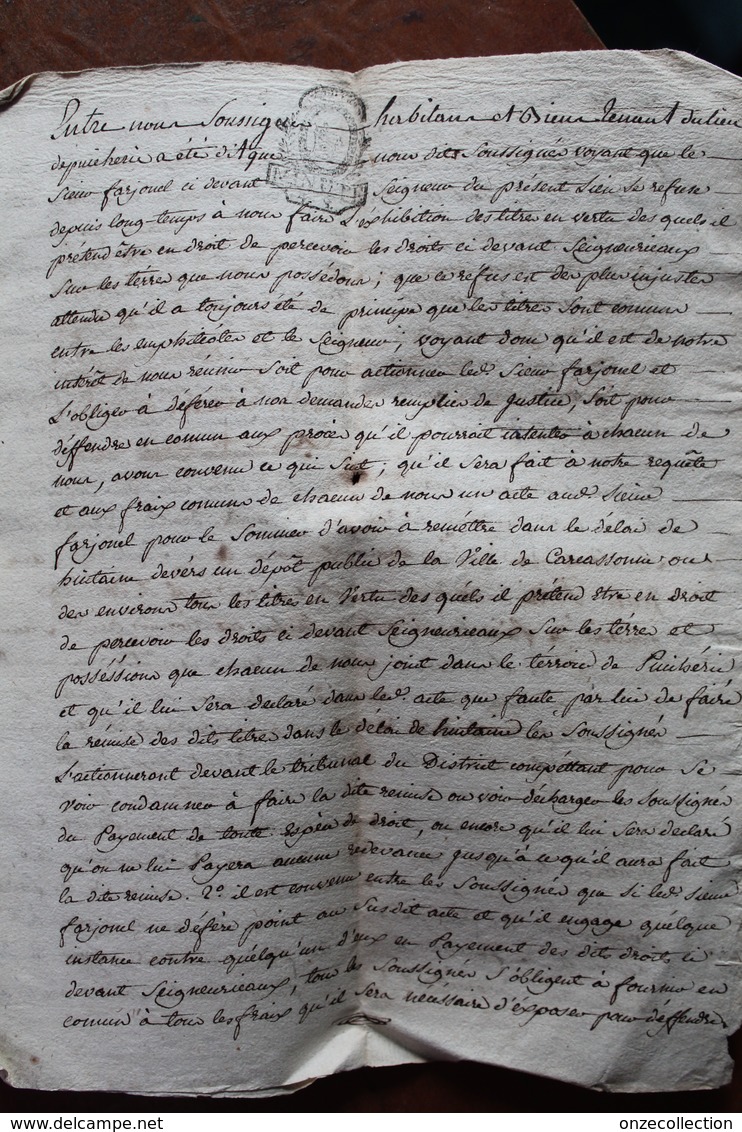 Entre nous Soussignés habitans et Biens tenant du lieu
depuicheric a été dit que nous dits Soussignés voyant que le
Sieur farjonel ci devant Seigneur du présent Lieu se refuse
depuis long-temps à nous faire L'exhibition des titres en vertu des quels il
prétend être en droit de percevoir les droits ci devant Seigneurieaux
Sur les terres que nous possédons; que ce refus est des plus injustes
attendu qu'il a toujours été de principe que les titres Sont comuns
entre les emphitéotes et le Seigneur; voyant donc qu'il est de notre
intérêt de nous réunir Soit pour actionner led. Sieur farjonel et
L'obliger à déférer à nos demandes remplies de justice, Soit pour
déffendre en comun aux procès qu'il pourroit intenter à chacun de
nous, avons convenu ce qui Suit; qu'il Sera fait à notre requête
et aux fraix comuns de chacun de nous un acte aud. Sieur
farjonel pour le Sommer d'avoir à reméttre dans le délai de
huitaine devers un dépôt public de la Ville de Carcassonne ou
des environs tous les titres en Vertu des quels il prétend être en droit
de percevoir les droits ci devant Seigneurieaux Sur les térres et
posséssions que chacun de nous jouit dans le térroir de Puichéric
et qu'il lui Sera déclaré dans led. acte que faute par lui de faire
la rémise des dits titres dans le délai de huitaine les Soussignés
L'actionneront devant le tribunal du District compéttant pour Se
voir condamner à faire la dite remise ou voir décharger les Soussignés
du Payement de toute Espèce de droit, ou encore qu'il lui Sera déclaré
qu'on ne lui Payera aucune redevance jusqu'à ce qu'il aura fait
la dite remise. 2° il est convenu entre les Soussignés que Si led. Sieur
farjonel ne défère point au Susdit acte et qu'il engage quelque
instance contre quélqu'un d'eux en Payement des dits droits ci
devant Seigneurieaux, tous les Soussignés S'obligent à fournir en
comun à tous les fraix qu'il Sera nécéssaire d'éxposer pour déffendre
onzecollection